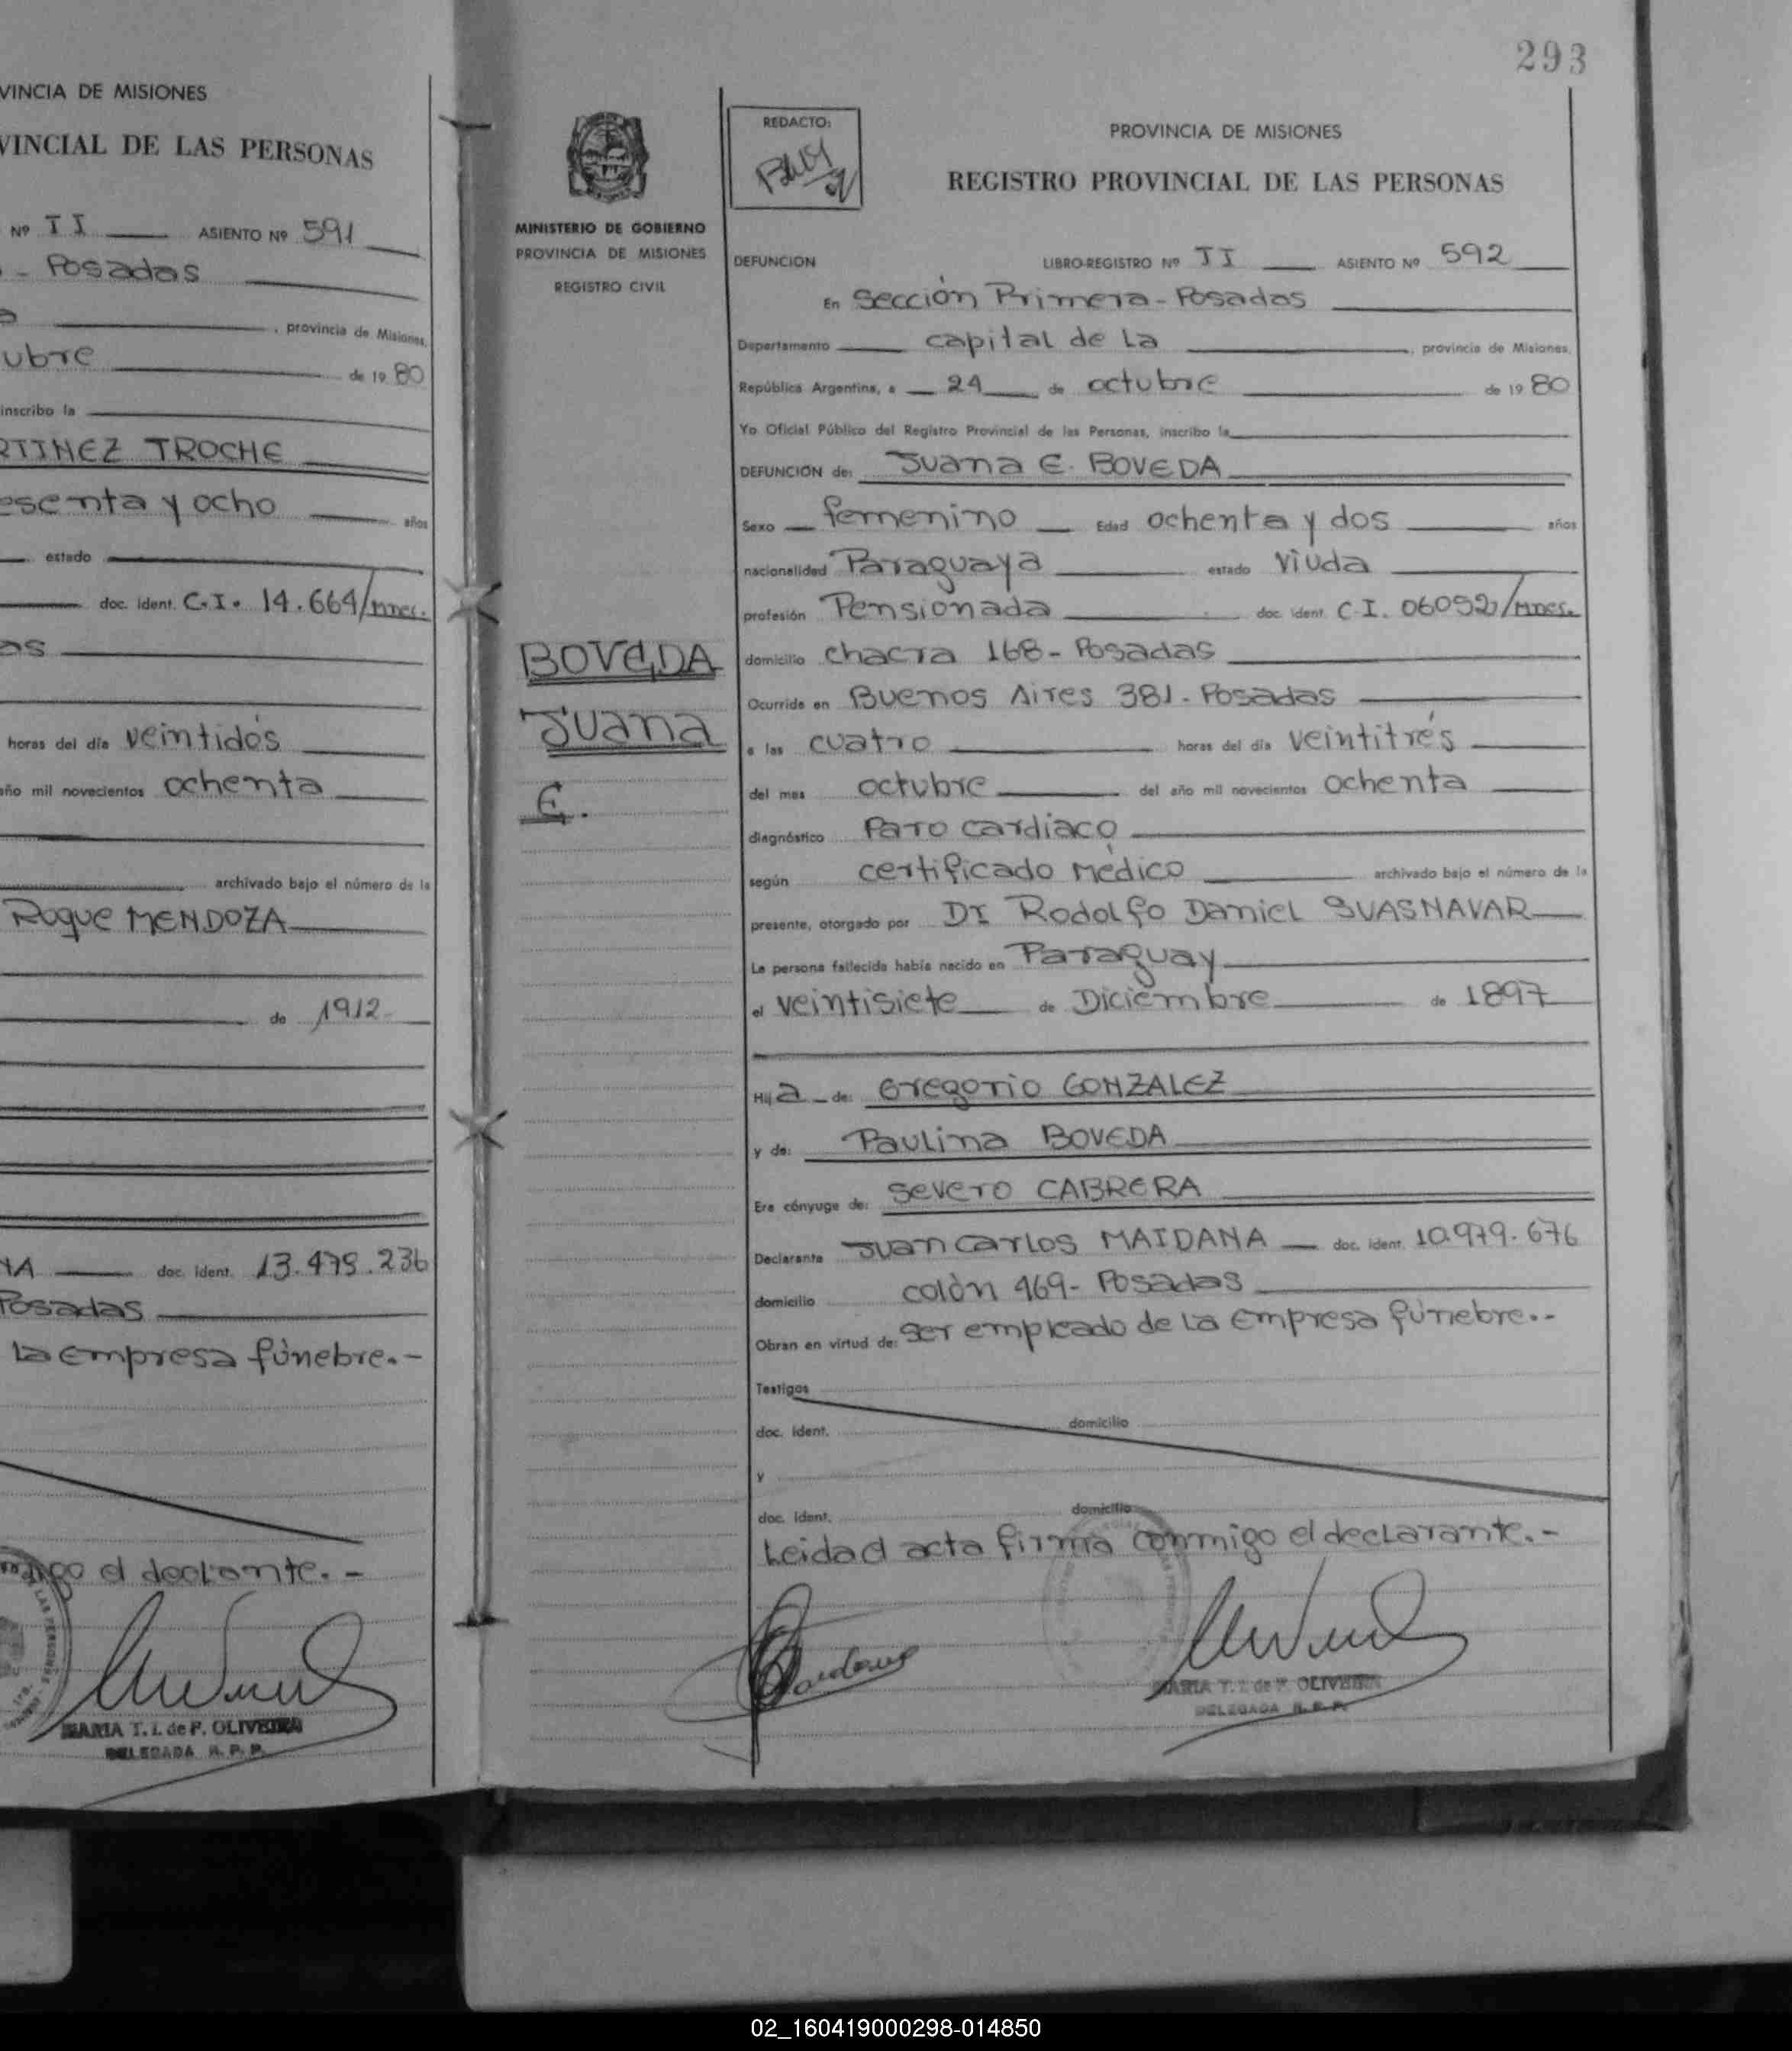 VINCIA DE MISIONES
VINCIAL DE LAS PERSONAS
Nº II ASIENTO Nº 591
- Posadas
, provincia de Misiones,
ubre de 1980
inscribo la
RTINEZ TROCHE
esenta y ocho años
estado
doc. ident. C.I. 14.664/mnes.
as
horas del día veintidós
año mil novecientos ochenta
archivado bajo el número de la
Roque MENDOZA
de 1912
NA doc. ident. 13.479.236
Posadas
la empresa fúnebre.-
el declarante.-
MARIA T. I. de P. OLIVEIRA
DELEGADA R. P. P.
293
MINISTERIO DE GOBIERNO
PROVINCIA DE MISIONES
REGISTRO CIVIL
BOVEDA
Juana
E.
REDACTO:
PROVINCIA DE MISIONES
REGISTRO PROVINCIAL DE LAS PERSONAS
DEFUNCION LIBRO-REGISTRO Nº II ASIENTO Nº 592
En Sección Primera - Posadas
Departamento capital de la , provincia de Misiones,
República Argentina, a 24 de octubre de 1980
Yo Oficial Público del Registro Provincial de las Personas, inscribo la
DEFUNCIÓN de: Juana E. BOVEDA
Sexo femenino Edad ochenta y dos años
nacionalidad Paraguaya estado viuda
profesión Pensionada doc. ident. C.I. 06052/mnes.
domicilio chacra 168 - Posadas
Ocurrida en Buenos Aires 381 - Posadas
a las cuatro horas del día veintitrés
del mes octubre del año mil novecientos ochenta
diagnóstico Paro cardiaco
según certificado médico archivado bajo el número de la
presente, otorgado por Dr Rodolfo Daniel SUASNAVAR
La persona fallecida había nacido en Paraguay
el veintisiete de Diciembre de 1897
Hija de: Gregorio GONZALEZ
y de: Paulina BOVEDA
Era cónyuge de: Severo CABRERA
Declarante Juan Carlos MAIDANA doc. ident. 10.979.676
domicilio colón 469 - Posadas
Obran en virtud de: ser empleado de la empresa fúnebre.-
Testigos
doc. ident. domicilio
y
doc. ident. domicilio
Leidad acta firma conmigo el declarante.-
MARIA T. I. de P. OLIVEIRA
DELEGADA R. P. P.
02_160419000298-014850